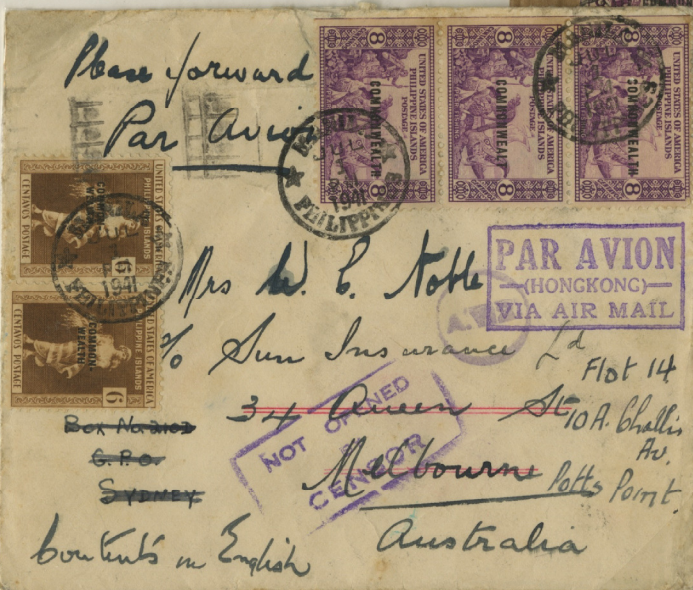 Please forward
Par Avion
8 8
UNITED STATES OF AMERICA
PHILIPPINE ISLANDS
POSTAGE
COMMONWEALTH
8 8
UNITED STATES OF AMERICA
PHILIPPINE ISLANDS
POSTAGE
COMMONWEALTH
8 8
UNITED STATES OF AMERICA
PHILIPPINE ISLANDS
POSTAGE
COMMONWEALTH
MANILA
1941
PHILIPPINES
1941
UNITED STATES OF AMERICA
PHILIPPINE ISLANDS
COMMONWEALTH
6
CENTAVOS POSTAGE
1941
PHILIPPINES
UNITED STATES OF AMERICA
PHILIPPINE ISLANDS
COMMON-
WEALTH
6
CENTAVOS POSTAGE
PAR AVION
(HONGKONG)
VIA AIR MAIL
Mrs W. E. Noble
c/o Sun Insurance Ld
34 Queen St
Melbourne
Australia
Flat 14
10A. Challis
Av.
Potts Point.
NOT OPENED
CENSOR
G.P.O.
SYDNEY
Contents in English